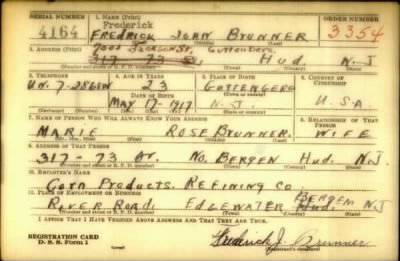 SERIAL NUMBER 1. NAME (Print) ORDER NUMBER
Frederick
4164 FREDRICK JOHN BRUNNER 3354
(First) (Middle) (Last)
7001 Jackson St. Guttenberg
2. ADDRESS (Print)
317 73 St. Hud. N.J.
(Number and street or R. F. D. number) (Town) (County) (State)
3. TELEPHONE 4. AGE IN YEARS 5. PLACE OF BIRTH 6. COUNTRY OF CITIZENSHIP
UN. 7-2861W 23 GUTTENGERG
DATE OF BIRTH (Town or county)
MAY 17 1917 N.J. U.S.A.
(Exchange) (Number) (Mo.) (Day) (Yr.) (State or country)
7. NAME OF PERSON WHO WILL ALWAYS KNOW YOUR ADDRESS 8. RELATIONSHIP OF THAT PERSON
MARIE ROSE BRUNNER. WIFE
9. ADDRESS OF THAT PERSON
317-73 St. NO. BERGEN HUD. N.J.
(Number and street or R. F. D. number) (Town) (County) (State)
10. EMPLOYER'S NAME
CORN PRODUCTS. REFINING CO.
11. PLACE OF EMPLOYMENT OR BUSINESS
BERGEN
RIVER ROAD. EDGEWATER Hud. N.J
(Number and street or R. F. D. number) (Town) (County) (State)
I AFFIRM THAT I HAVE VERIFIED ABOVE ANSWERS AND THAT THEY ARE TRUE.
REGISTRATION CARD
D. S. S. Form 1 Frederick J. Brunner
(Registrant's signature)